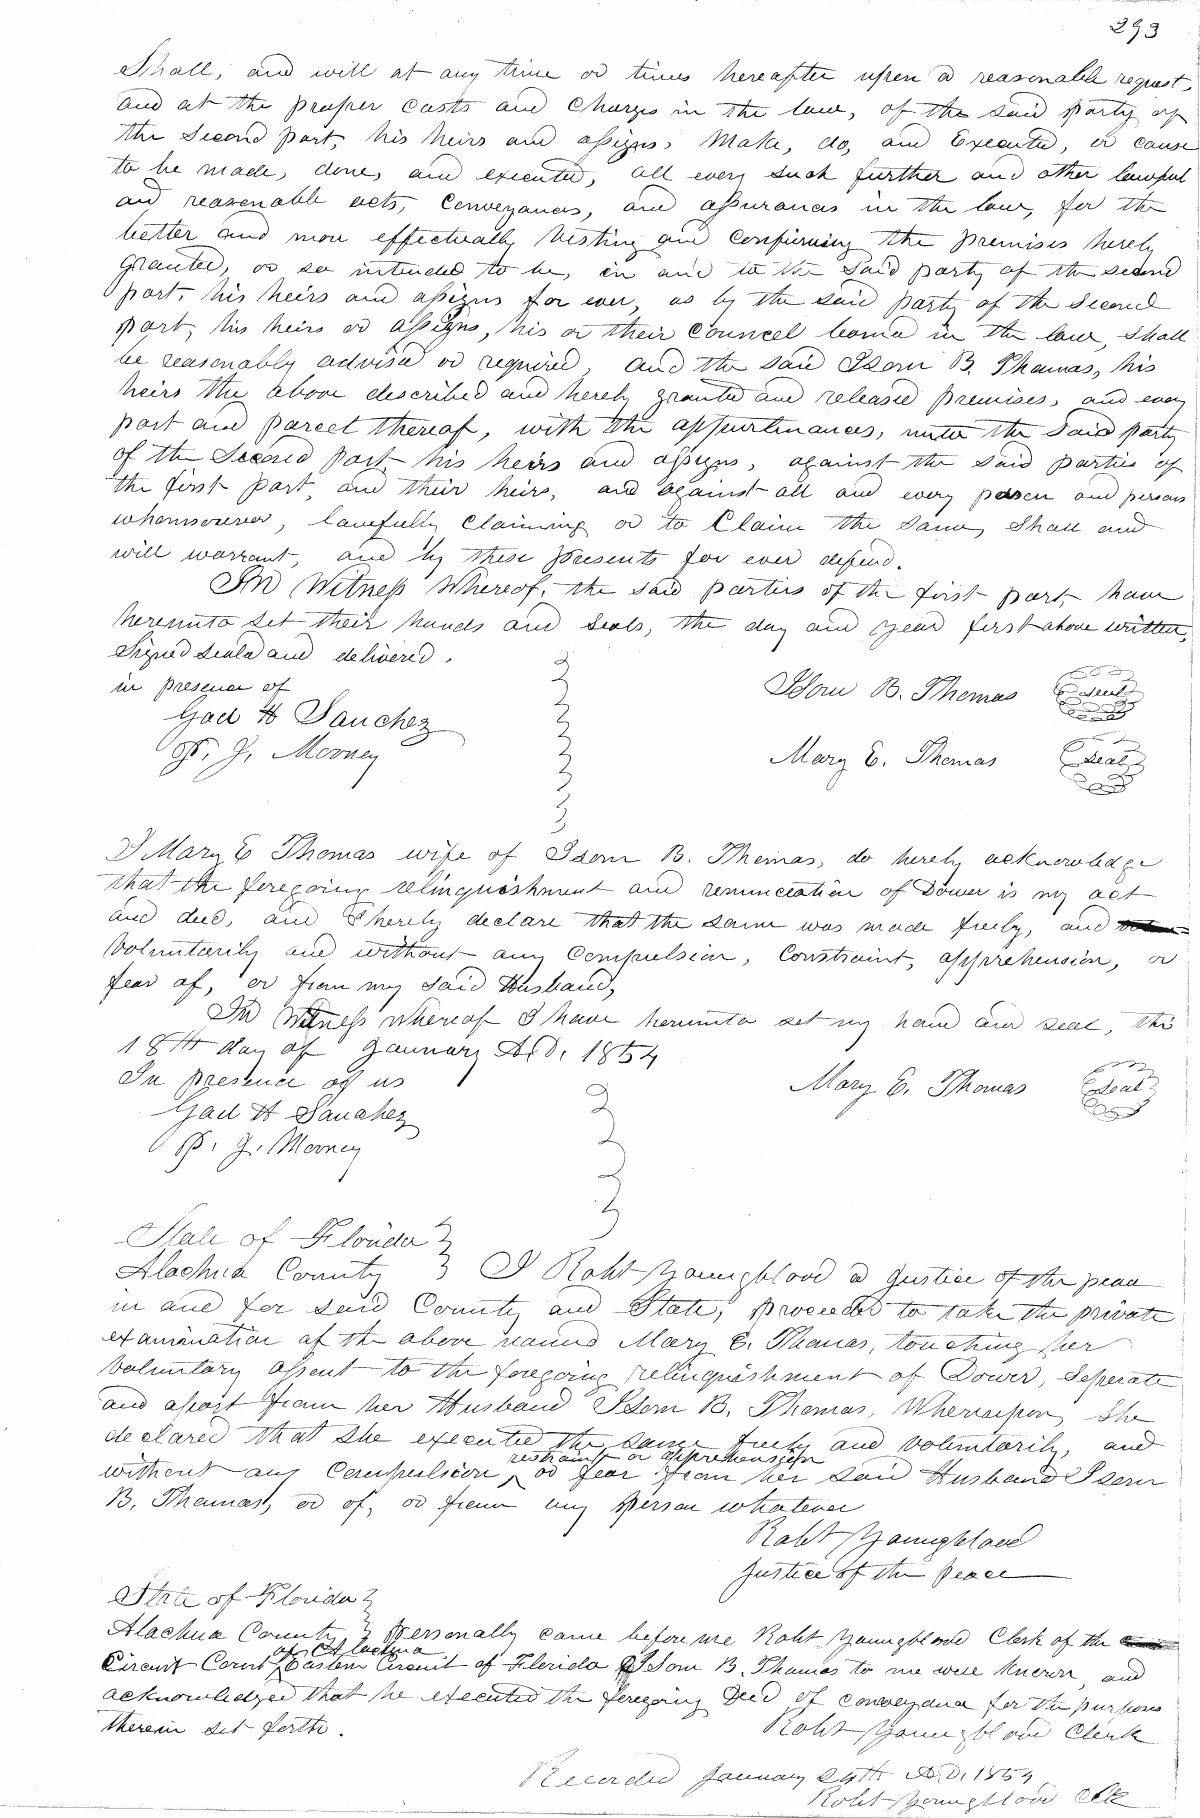 293
Shall, and will at any time or times hereafter upon a reasonable request,
and at the proper costs and Charges in the law, of the said party of
the second part, his heirs and assigns, Make, do, and Execute, or cause
to be made, done, and executed, all every such further and other lawful
and reasonable acts, Conveyances, and assurances in the law, for the
better and more effectually Vesting and confirming the premises hereby
granted, or so intended to be, in and to the said party of the second
part, his heirs and assigns for ever, as by the said party of the Second
part, his heirs or assigns, his or their Councel learned in the law, shall
be reasonably advised or required, and the said Isom B. Thomas, his
heirs the above described and hereby granted and released premises, and every
part and parcel thereof, with the appurtenances, unto the said party
of the Second part, his heirs and assigns, against the said parties of
the first part, and their heirs, and against all and every person and persons
whomsoever, lawfully Claiming or to Claim the same, Shall and
will warrant, and by these presents for ever defend.
In Witness Whereof, the said parties of the first part, have
hereunto set their hands and seals, the day and year first above written,
Signed seald and delivered,
in presence of
Gad H Sanchez
P. J. Mooney
Isom B. Thomas seal
Mary E. Thomas seal
I Mary E Thomas wife of Isom B. Thomas, do hereby acknowledge
that the foregoing relinquishment and renunciation of Dower is my act
and deed, and I hereby declare that the same was made freely, and
Voluntarily and without any Compulsion, Constraint, apprehension, or
fear of, or from my said Husband,
In Witness whereof I have hereunto set my hand and seal, this
18th day of January A.D. 1854
In presence of us
Gad H Sanchez
P. J. Mooney
Mary E. Thomas seal
State of Florida
Alachua County I Robt Youngblood a Justice of the peace
in and for said County and State, proceeded to take the private
examination of the above named Mary E. Thomas, touching her
voluntary assent to the foregoing relinquishment of Dower, Seperate
and apart from her Husband Isom B. Thomas, Whereupon, She
declared that she executed the same freely and voluntarily, and
restraint or apprehension
without any Compulsion, or fear from her said Husband Isom
B. Thomas, or of, or from any person whatever
Robt Youngblood
Justice of the peace
State of Florida
Alachua County personally came before me Robt Youngblood Clerk of the
of Alachua
Circuit Court Eastern Circuit of Florida Isom B. Thomas to me well known, and
acknowledged that he executed the foregoing Deed of conveyance for the purposes
therein set forth.
Robt Youngblood Clerk
Recorded January 24th A.D. 1854
Robt Youngblood Clk